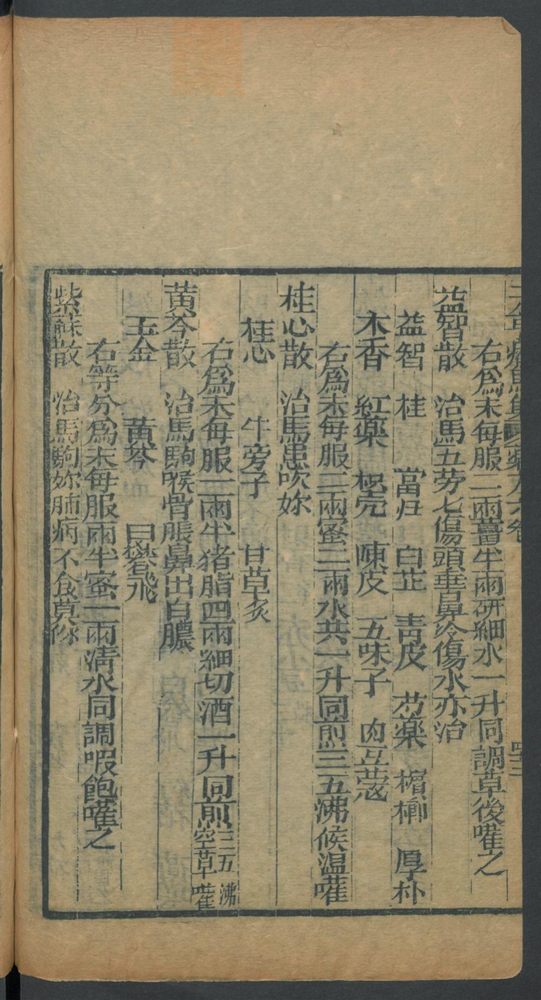 右爲末每服二兩薑半兩研細水一升同調草後嚾之
益智散　治馬五劳七傷頭垂鼻冷傷水亦治
益智　桂　當归　白芷　青皮　芍藥　檳榔　厚朴
木香　紅藥　枳壳　陳皮　五味子　肉豆蔻
右爲末每服三兩蜜二兩水共一升同煎三五沸候温嚾
桂心散　治馬患吹妳
桂心　牛旁子　甘草炙
右爲末每服二兩半猪脂四兩細切酒一升同煎三五沸空草嚾
黄芩散　治馬駒喉骨脹鼻出白膿
玉金　黄芩　白礬飛
右等分爲末每服一兩半蜜二兩清水同調啜飽嚾之
紫蘇散　治馬駒妳肺病不食莫